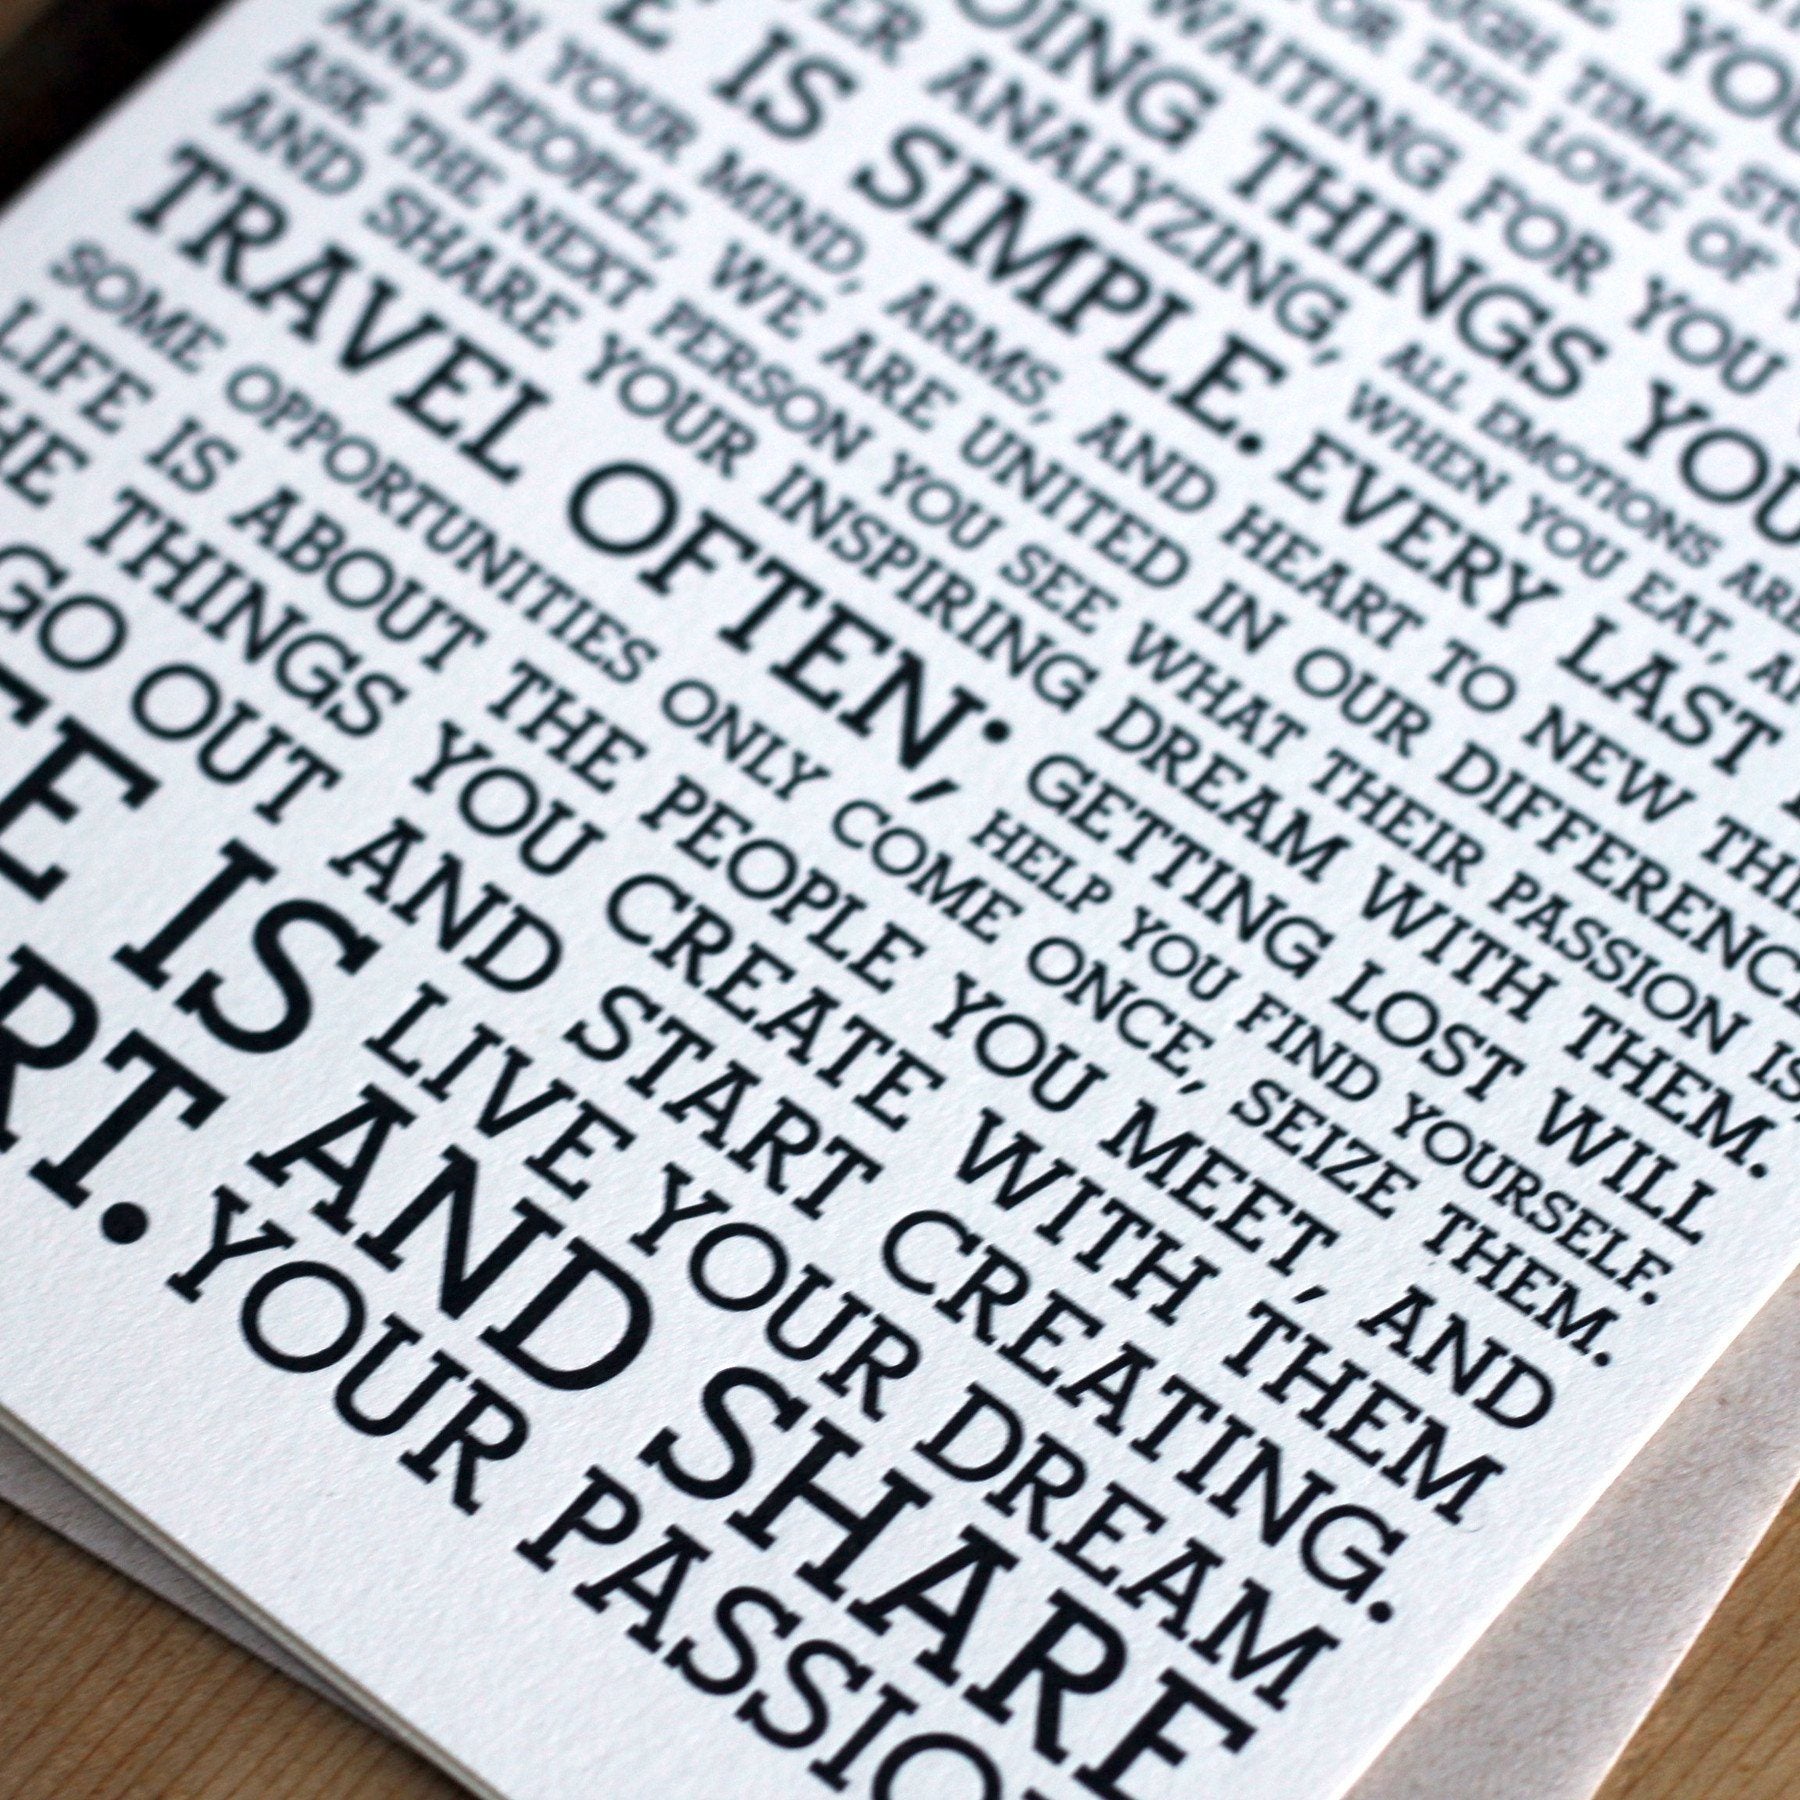 YOU
OUGH TIME, STO
FOR THE LOVE OF
WAITING FOR YOU
OING THINGS YOU
ER ANALYZING, ALL EMOTIONS ARE
WHEN YOU EAT, AP
IS SIMPLE. EVERY LAST
EN YOUR MIND, ARMS, AND HEART TO NEW THIN
AND PEOPLE, WE ARE UNITED IN OUR DIFFERENC
ASK THE NEXT PERSON YOU SEE WHAT THEIR PASSION IS,
AND SHARE YOUR INSPIRING DREAM WITH THEM.
TRAVEL OFTEN; GETTING LOST WILL
HELP YOU FIND YOURSELF.
SOME OPPORTUNITIES ONLY COME ONCE, SEIZE THEM.
LIFE IS ABOUT THE PEOPLE YOU MEET, AND
HE THINGS YOU CREATE WITH THEM
GO OUT AND START CREATING.
FE IS LIVE YOUR DREAM
RT. AND SHARE
YOUR PASSIO